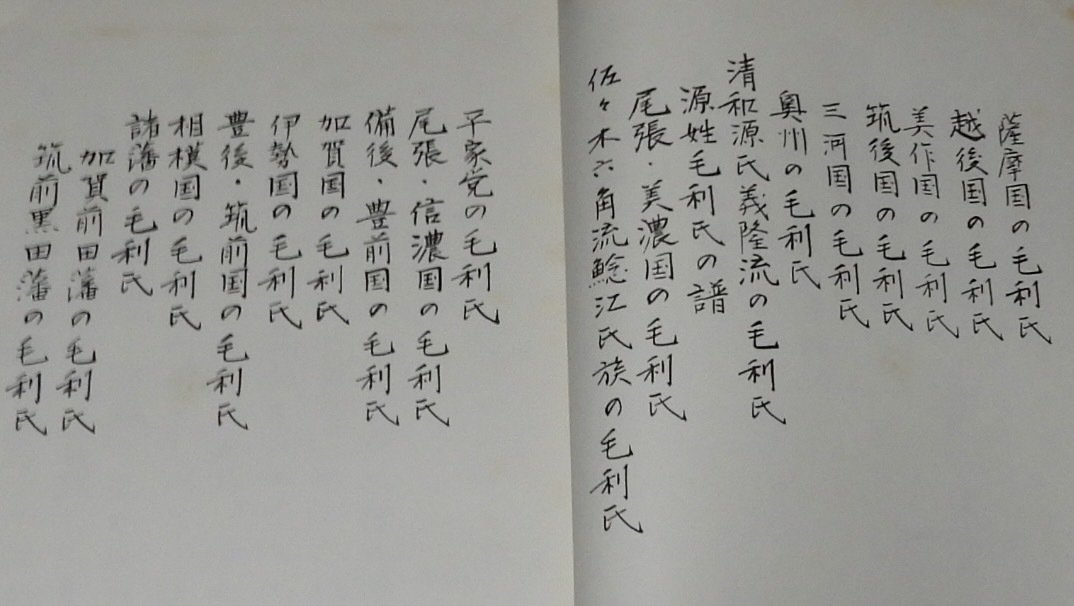 薩摩国の毛利氏
越後国の毛利氏
美作国の毛利氏
筑後国の毛利氏
三河国の毛利氏
奥州の毛利氏
清和源氏義隆流の毛利氏
源姓毛利氏の譜
尾張・美濃国の毛利氏
佐々木六角流鯰江氏族の毛利氏
子家党の毛利氏
尾張・信濃国の毛利氏
備後・豊前国の毛利氏
加賀国の毛利氏
伊勢国の毛利氏
豊後・筑前国の毛利氏
相模国の毛利氏
諸藩の毛利氏
加賀前田藩の毛利氏
筑前黒田藩の毛利氏